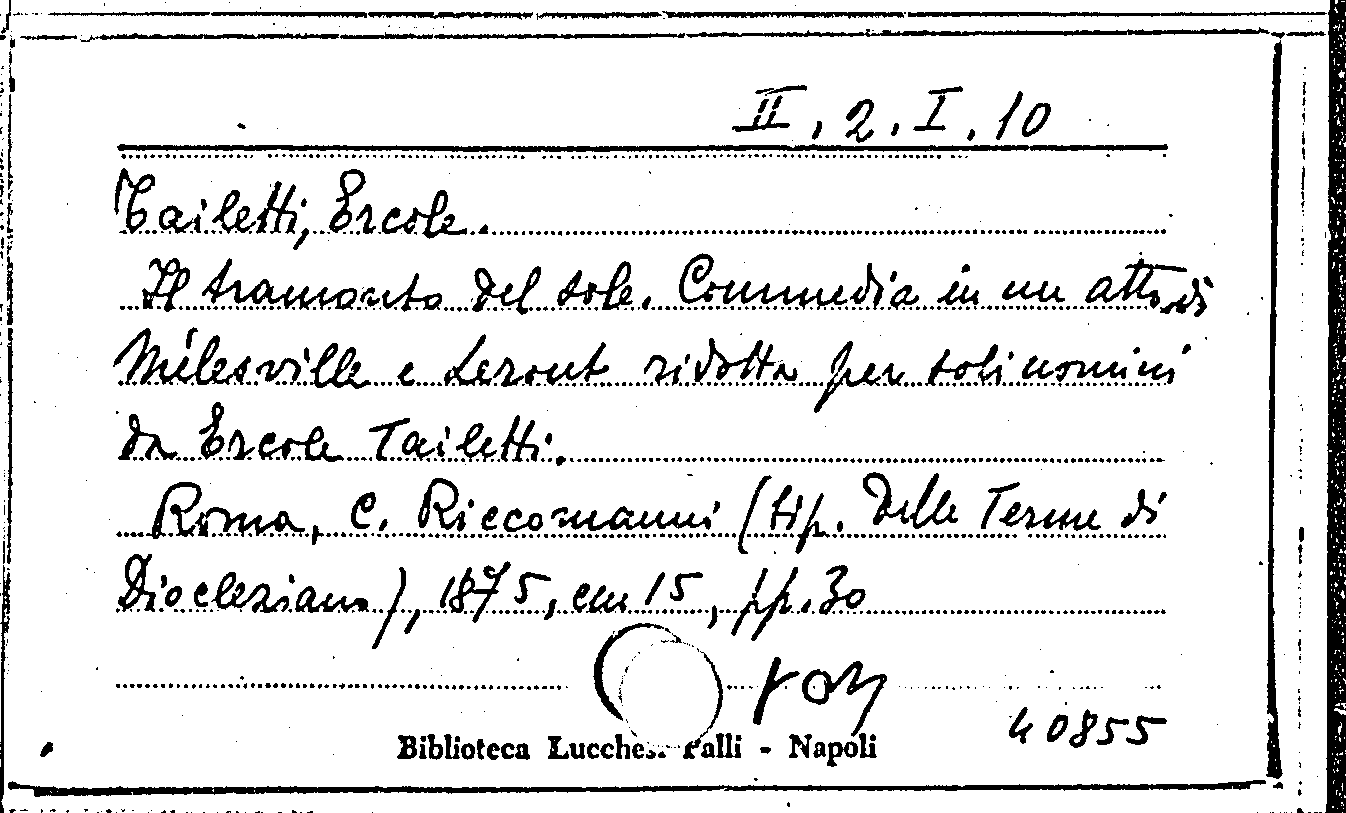 II. 2. I. 10
Tailetti, Ercole.
Il tramonto del sole. Commedia in un atto di
Mélesville e Leront ridotta per soli uomini
da Ercole Tailetti.
Roma, C. Riccomanni (tip. delle Terme di
Diocleziano), 1875, cm 15, pp. 30
Biblioteca Lucchesi Palli - Napoli
40855